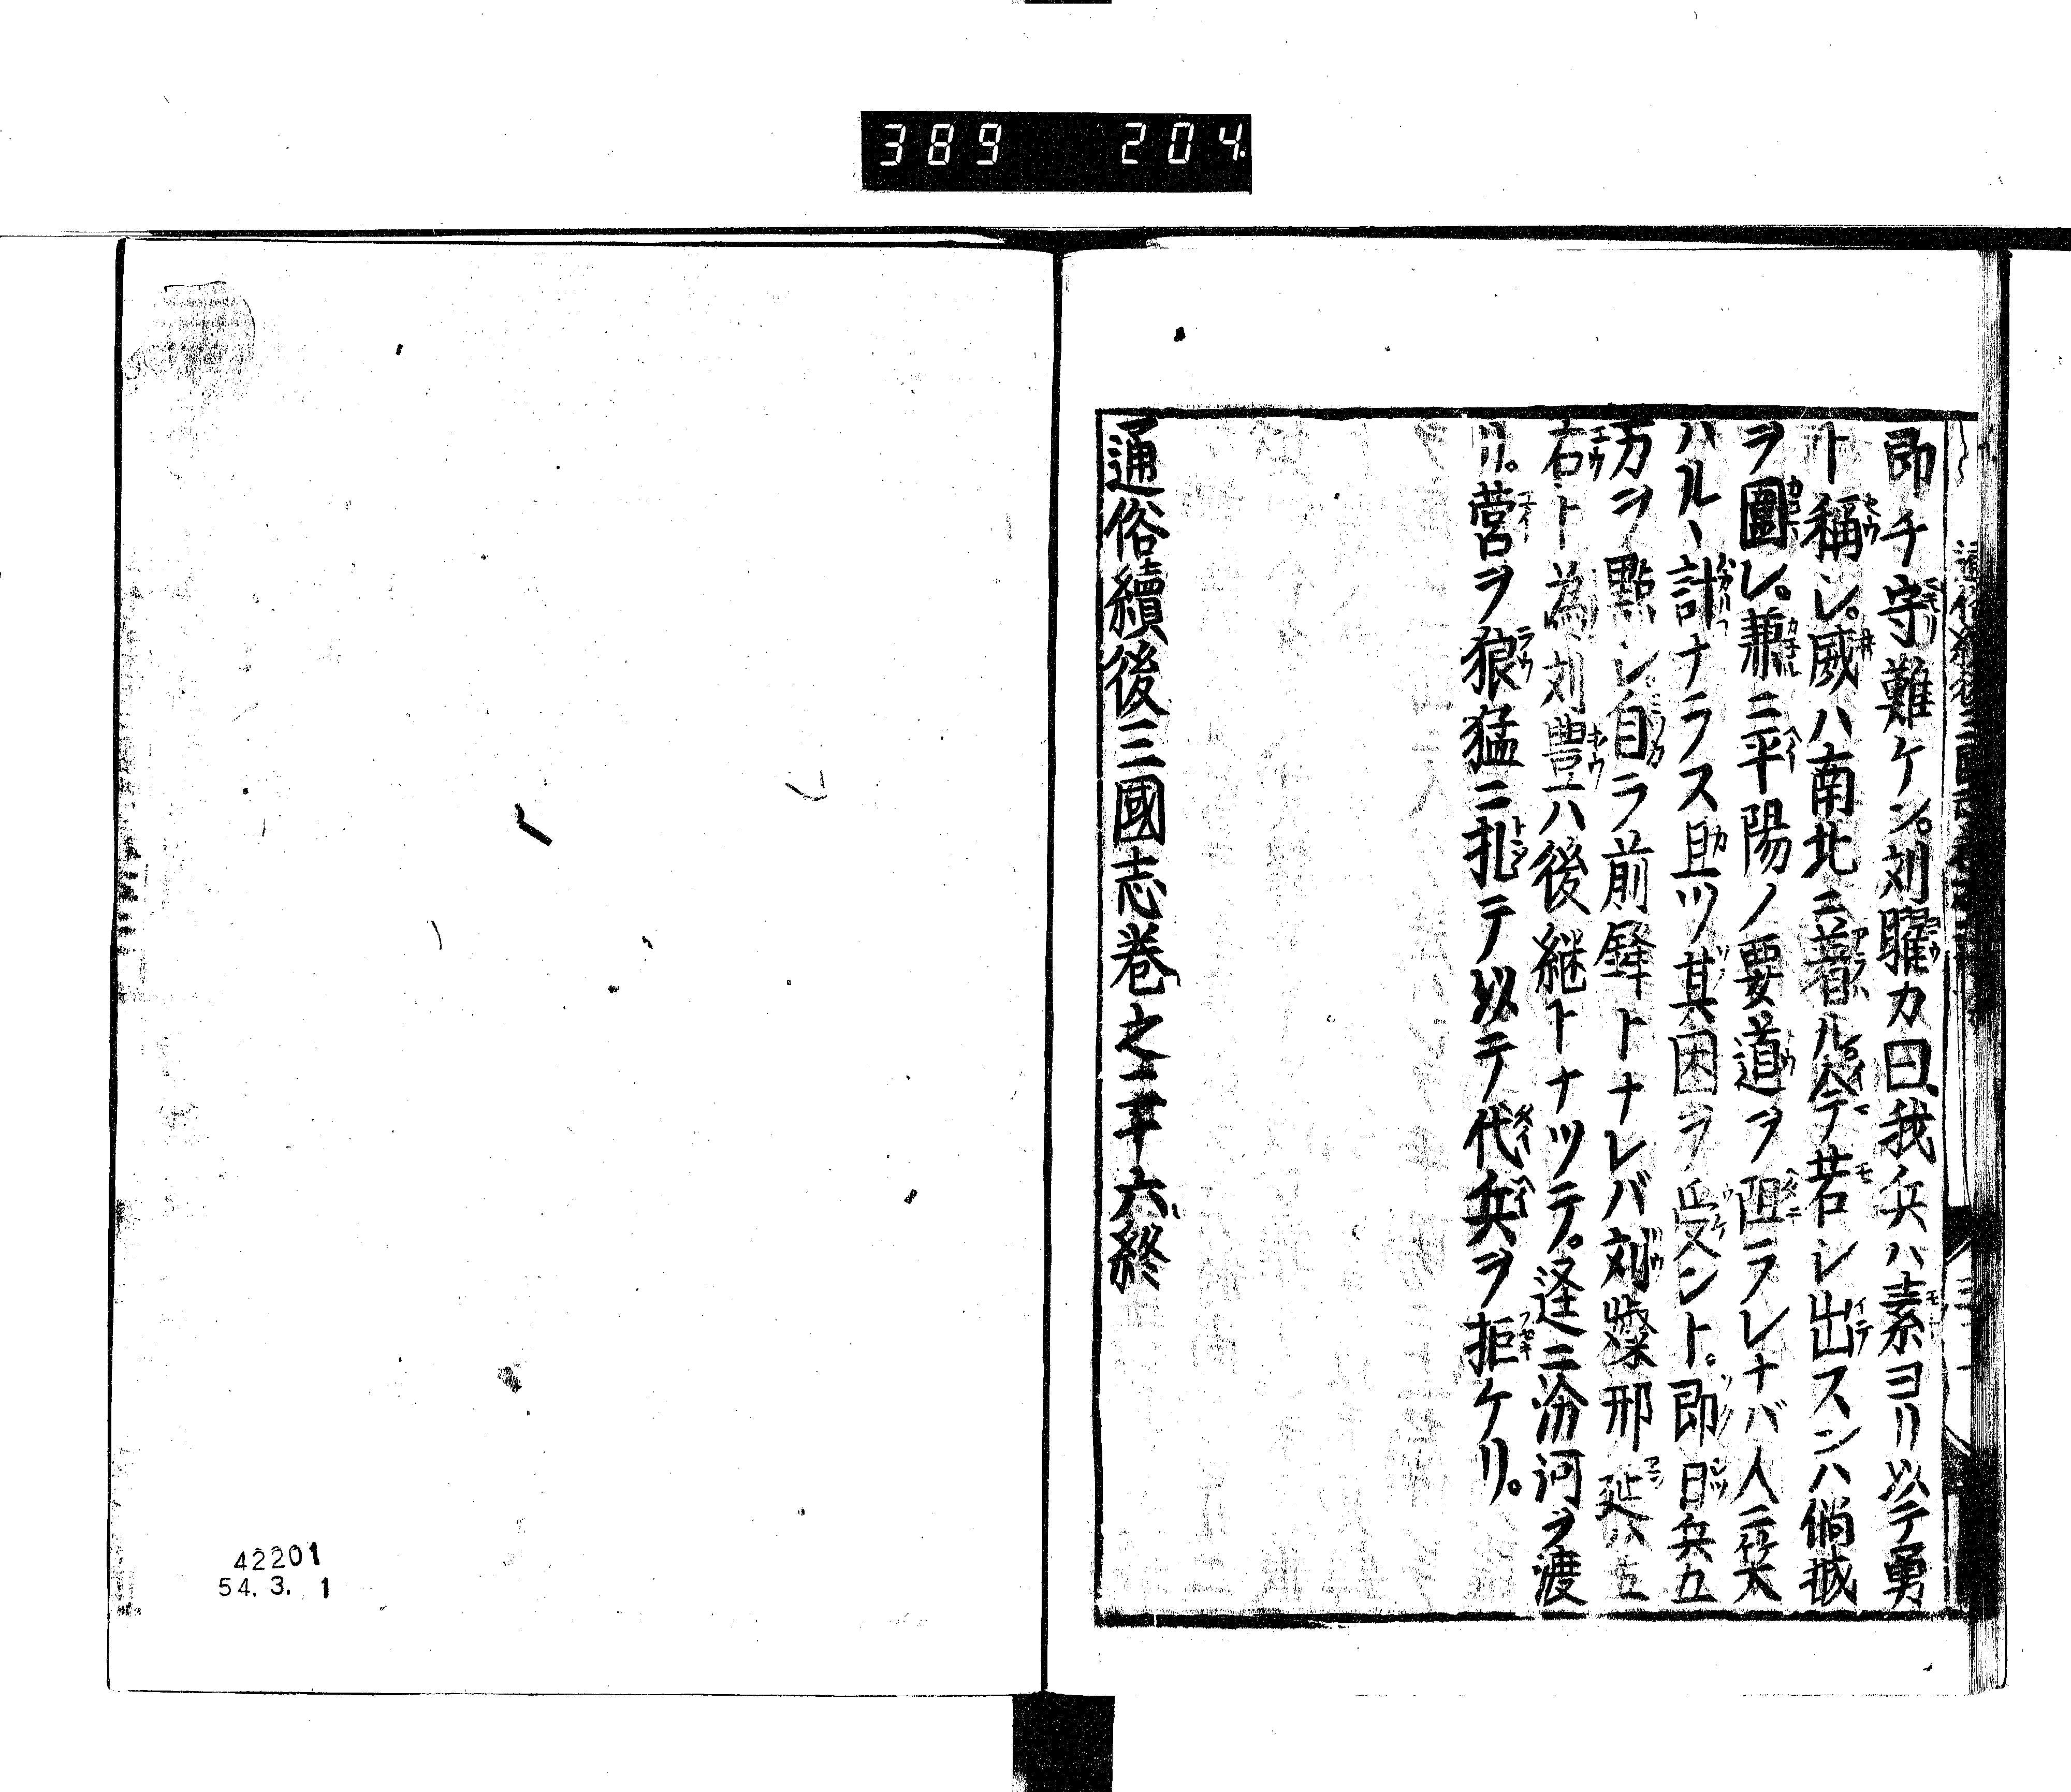 389 204
即チ守難ケン。刘曜カ曰、我兵ハ素ヨリ以テ勇
ト稱シ。威ハ南北ニ著ル今テ若シ出スンハ倘城
ヲ圍レ。兼ニ平陽ノ要道ヲ阻ラレナバ人ニ笑
ハルヽ計ナラス且ツ其困ヲ受ント。即日兵五
万ヲ點シ自ラ前鋒トナレバ刘燦邢延ハ左
右ト為刘豊ハ後継トナツテ。逕ニ汾河ヲ渡
リ。営ヲ狼猛ニ扎テ以テ代兵ヲ拒ケリ。
通俗續後三國志巻之二十六終
42201
54. 3. 1